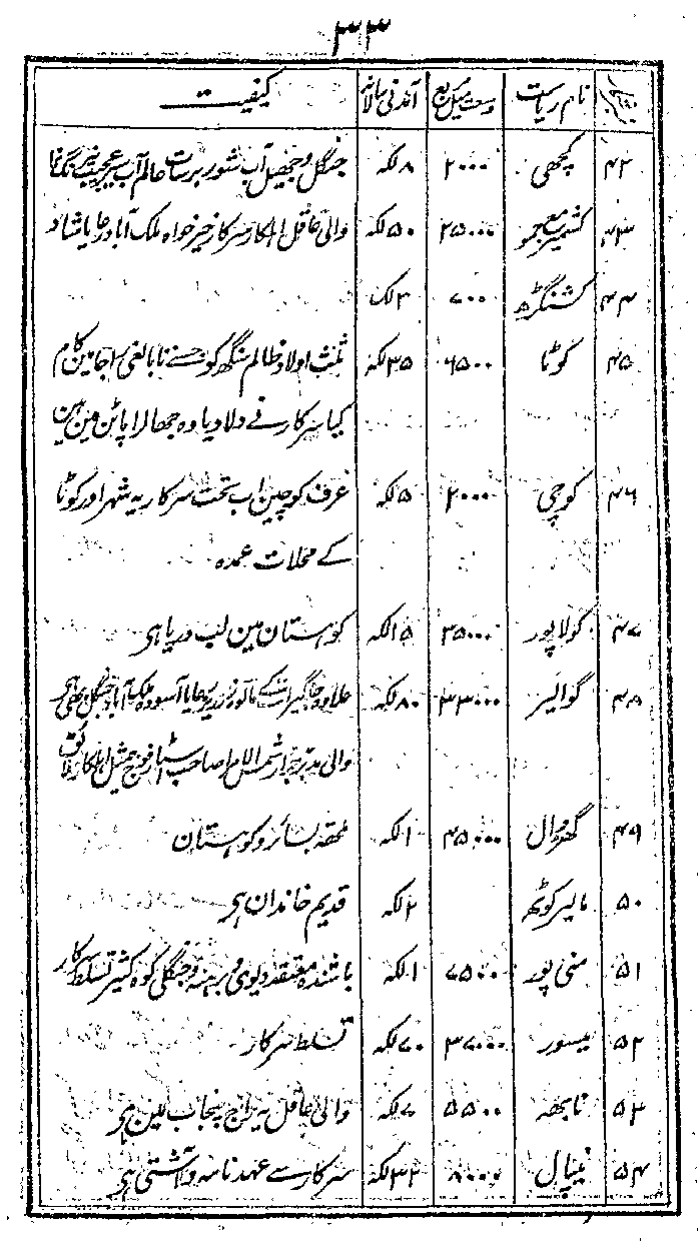 ۳۳
نمبر شمار نام ریاست وسعت میل مربع آمدنی سالانہ کیفیت
۴۲ کچھی ۲۰۰۰ ۸ لکہ جنگل و جھیل آب شور برسات عالم آب عجیب نیرنگ نما
۴۳ کشمیر مع جمو ۲۵۰۰۰ ۵۰ لکہ والی عاقل اہلکار سرکار خیرخواہ ملک آباد رعایا شاد
۴۴ کشنگڑہ ۷۰۰ ۳ لک
۴۵ کوٹا ۶۵۰۰ ۳۵ لکہ ثلث اولاد ظالم سنگھ کو جسنے نابالغی راجا مین کام
کیا سرکار نے دلا دیا وہ جھالرا پاٹن مین ہین
۴۶ کوچی ۲۰۰۰ ۵ لکہ عرف کوچین اب تحت سرکار یہ شہر اور کوٹا
کے محلات عمدہ
۴۷ کولاپور ۳۵۰۰۰ ۱۵ لکہ کوہستان مین لب دریا ہی
۴۸ گوالیر ۳۳۰۰۰ ۸۰ لکہ علاوہ جاگیرات کے مالوہ زرریز رعایا آسودہ ملک آباد جنگل بھی ہی
والی مدبر جرار شمس الامرا صاحب اسٹار فوج جمیل اہلکار لائق
۴۹ گھروال ۴۵۰۰۰ ۱ لکہ ملحقہ بسائر و کوہستان
۵۰ مالیر کوٹھ ۲ لکہ قدیم خاندان ہی
۵۱ منی پور ۷۵۰۰ ۱ لکہ باشندہ معتقد دیوی و برہنہ و جنگلی کوہ کثیر تسلط سرکار
۵۲ میسور ۳۷۰۰۰ ۷۰ لکہ تسلط سرکار
۵۳ نابھہ ۵۵۰۰ ۷ لکہ والی عاقل یہ راج پنجاب مین ہی
۵۴ نیپال ۸۰۰۰۰ ۳۲ لکہ سرکار سے عہدنامہ و آشتی ہی